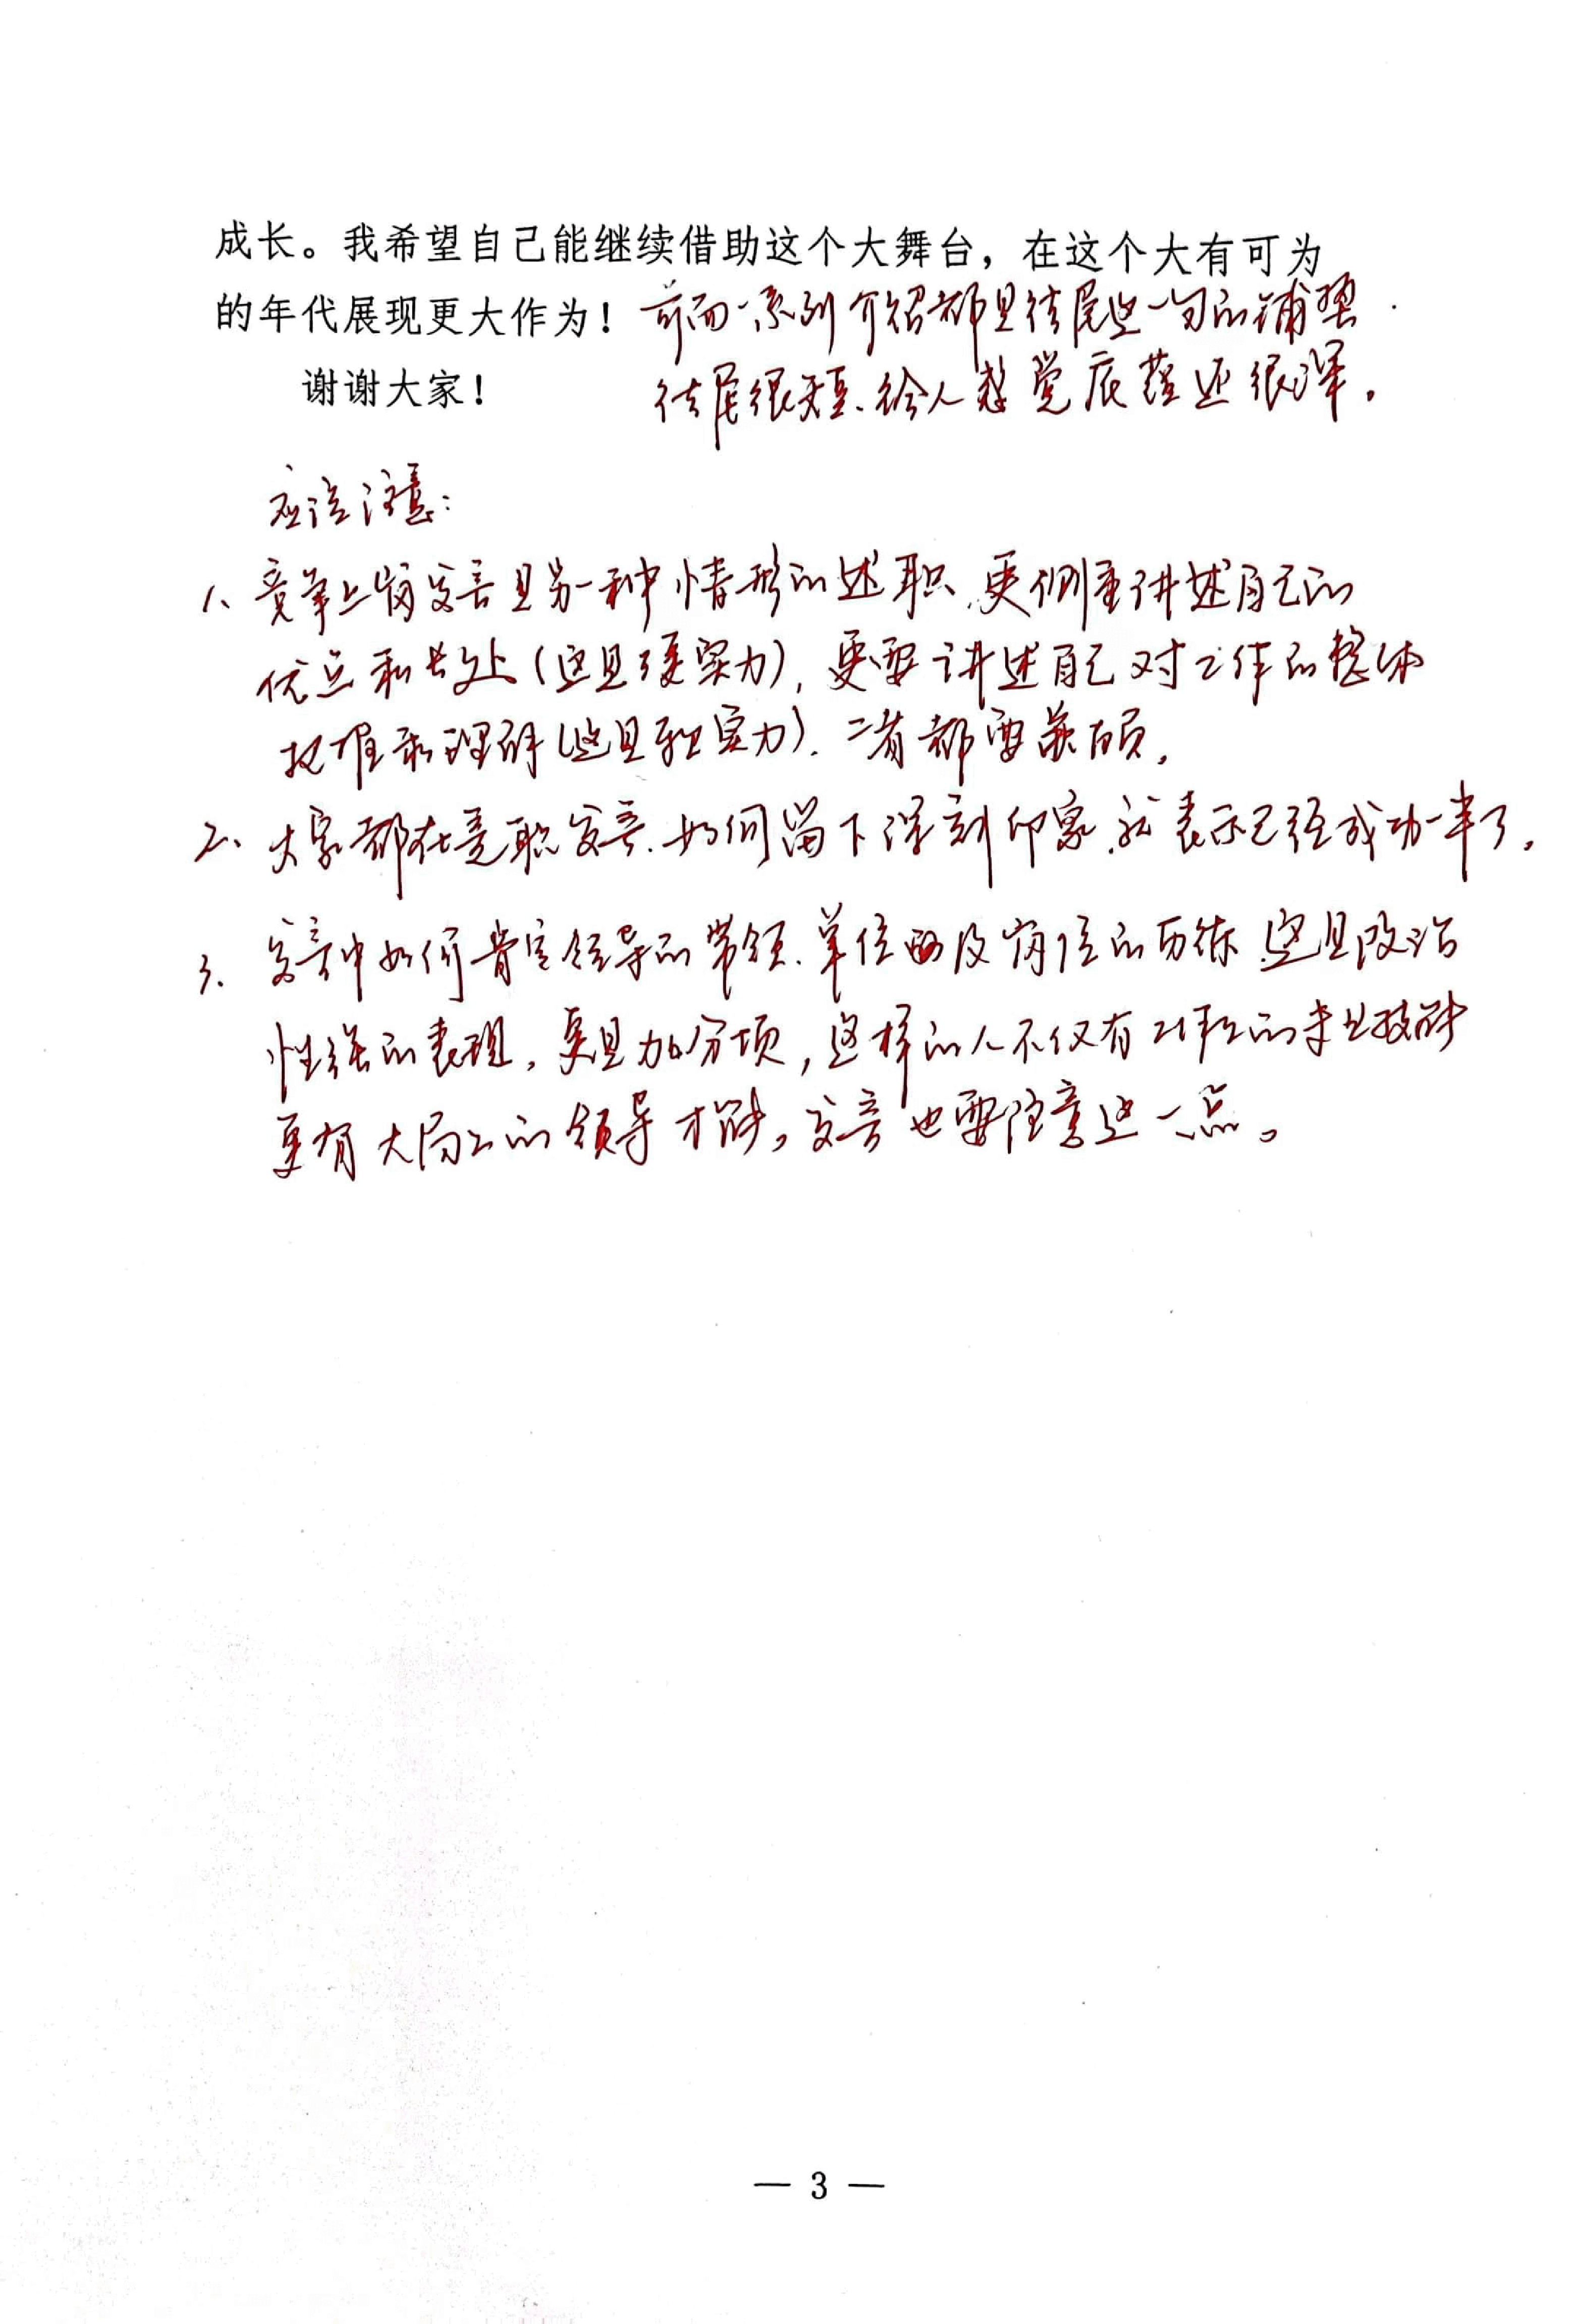 成长。我希望自己能继续借助这个大舞台，在这个大有可为
的年代展现更大作为！ 前面一系列介绍都是结尾这一句的铺垫．
谢谢大家！ 结尾很短、给人感觉底蕴还很深。
应该注意：
1、竞争上岗发言是另一种情形的述职，更侧重讲述自己的
优点和长处（这是硬实力），更要讲述自己对工作的整体
把握和理解（这是软实力）．二者都要兼顾。
2、大家都在竞职发言．如何留下深刻印象，就表示已经成功一半了。
3、发言中如何肯定领导的带领、单位以及岗位的历练，这是政治
性强的表现，更是加分项，这样的人不仅有过硬的专业技能
更有大局上的领导才能。发言也要注意这一点。
— 3 —